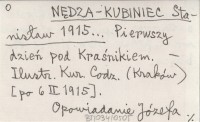 0
NĘDZA-KUBINIEC Sta-
nisław 1915... Pierwszy
dzień pod Kraśnikiem. —
Ilustr. Kur. Codz. (Kraków)
[po 6 IX 1915].
Opowiadanie Józefa